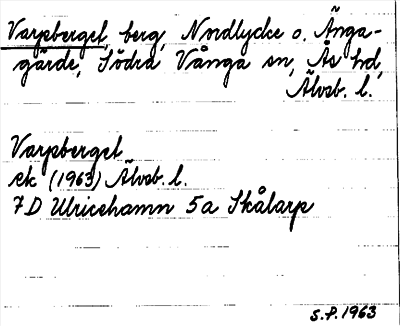 Varpberget, berg, Nordlycke o. Änga-
gärde, Södra Vånga sn, Ås hd,
Älvsb. l.
Varpberget
ek (1963) Älvsb. l.
7D Ulricehamn 5a Skålarp
S.P. 1963